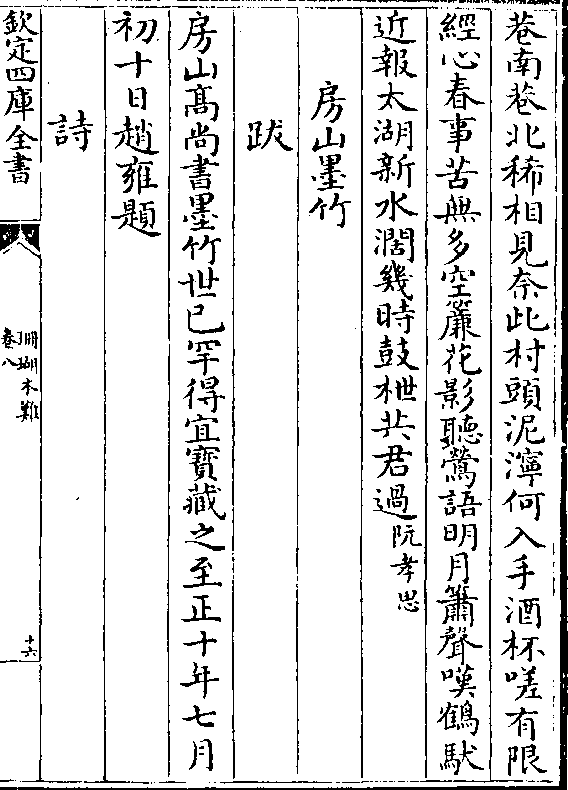 巷南巷北稀相見奈此村頭泥濘何入手酒杯嗟有限
經心春事苦無多空簾花影聽鶯語明月簫聲嘆鶴馱
近報太湖新水濶幾時鼓枻共君過阮孝思
房山墨竹
跋
房山髙尚書墨竹世已罕得宜寳藏之至正十年七月
初十日趙雍題
詩
欽定四庫全書
珊瑚木難
卷八
十六